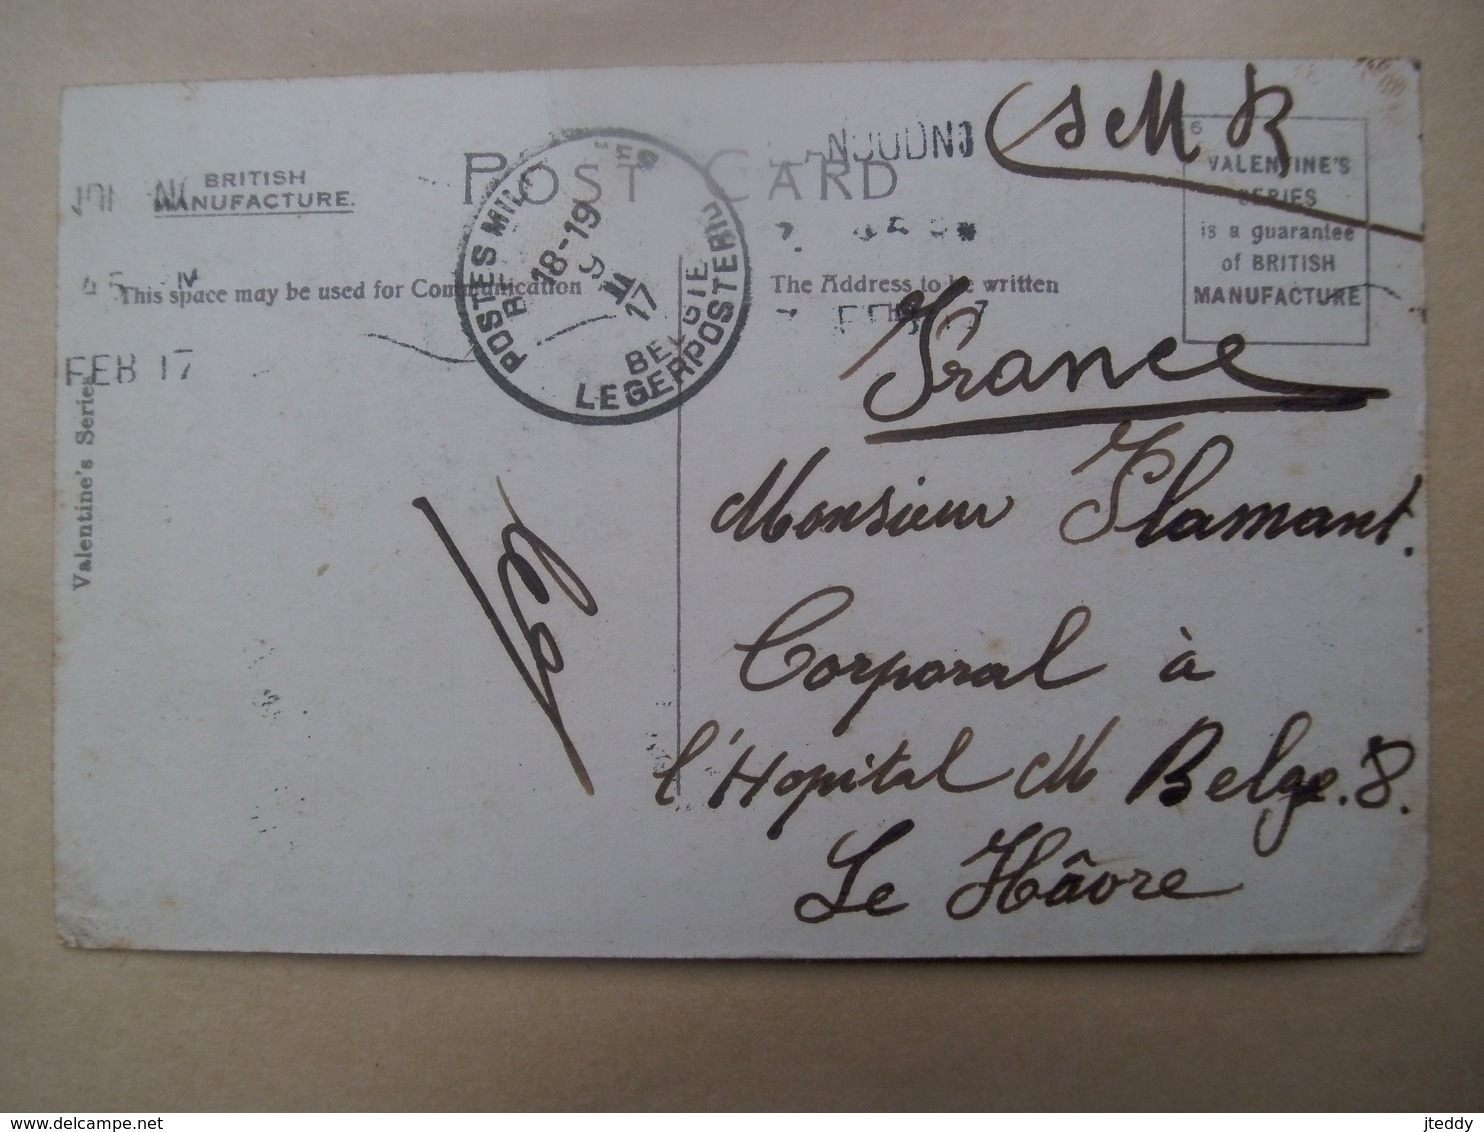 SM
BRITISH
MANUFACTURE.
POST CARD
6
VALENTINE'S
SERIES
is a guarantee
of BRITISH
MANUFACTURE
This space may be used for Communication
The Address to be written
FEB 17
POSTES MILIT ES
18-19
9
II
17
BELGIE
LEGERPOSTERIJ
Valentine's Series
France
Monsieur Flamant.
Corporal à
l'Hopital M Belge. 8.
Le Hâvre
jteddy